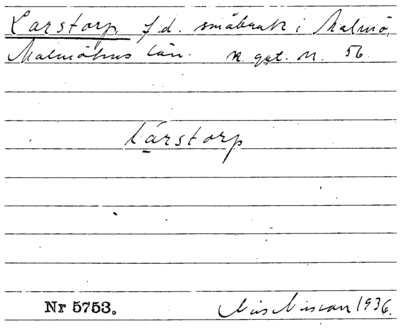 Larstorp f.d. småbruk i Malmö,
Malmöhus län. n. gpt. n. 56
Lárstorp
Nr 5753.
Nils Nilsson 1936.